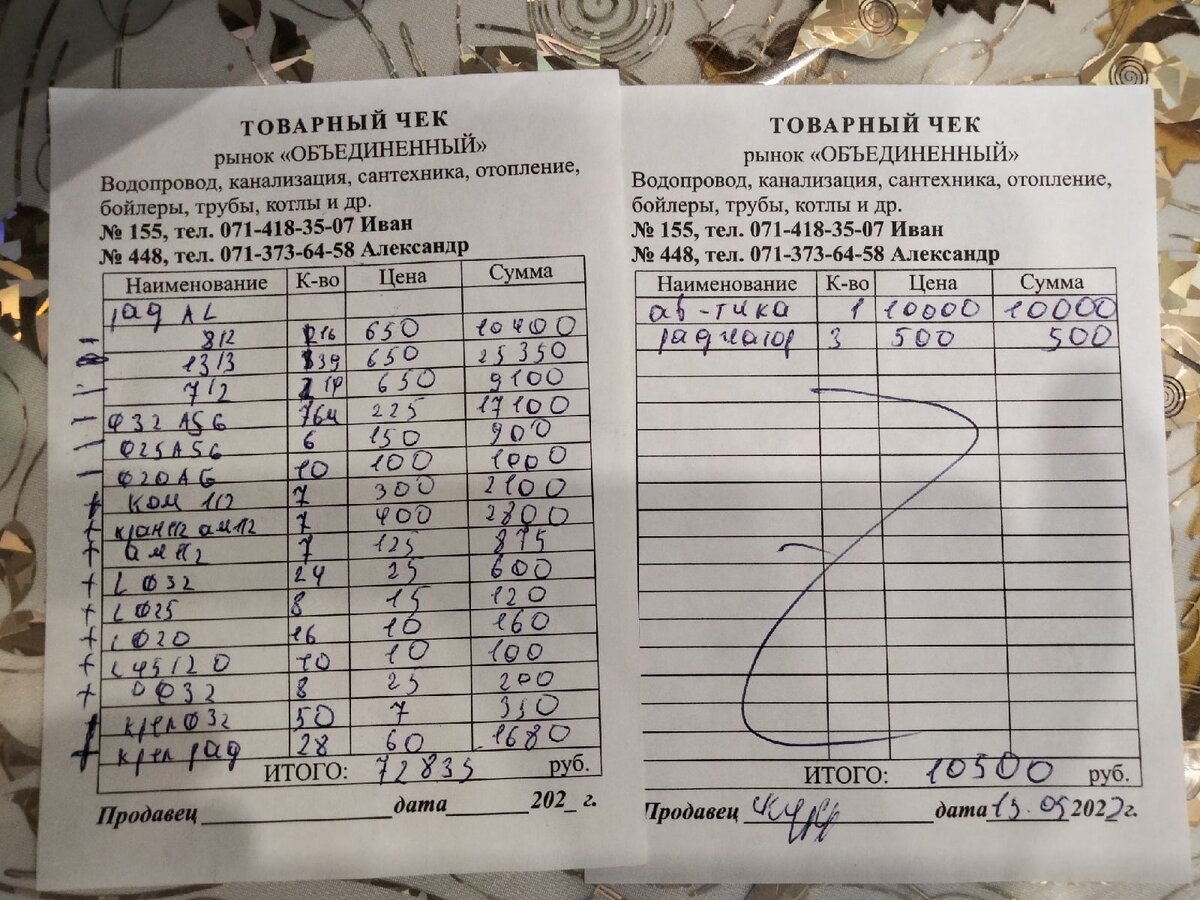 ТОВАРНЫЙ ЧЕК
рынок «ОБЪЕДИНЕННЫЙ»
Водопровод, канализация, сантехника, отопление,
бойлеры, трубы, котлы и др.
№ 155, тел. 071-418-35-07 Иван
№ 448, тел. 071-373-64-58 Александр
Наименование К-во Цена Сумма
рад AL
8/2 16 650 10400
13/3 39 650 25350
7/2 14 650 9100
Ф32 А56 76м 225 17100
Ф25А56 6 150 900
Ф20А6 10 100 1000
+ ком 1/2 7 300 2100
+ 7 400 2800
+ 7 125 875
+ L Ф32 24 25 600
+ L Ф25 8 15 120
+ L Ф20 16 10 160
+ L45/20 10 10 100
+ Ф32 8 25 200
креп Ф32 50 7 350
+ креп рад 28 60 1680
ИТОГО: 72835 руб.
Продавец дата 202_ г.
ТОВАРНЫЙ ЧЕК
рынок «ОБЪЕДИНЕННЫЙ»
Водопровод, канализация, сантехника, отопление,
бойлеры, трубы, котлы и др.
№ 155, тел. 071-418-35-07 Иван
№ 448, тел. 071-373-64-58 Александр
Наименование К-во Цена Сумма
ав-тика 1 10000 10000
радиатор 3 500 500
ИТОГО: 10500 руб.
Продавец дата 13.09 2022 г.